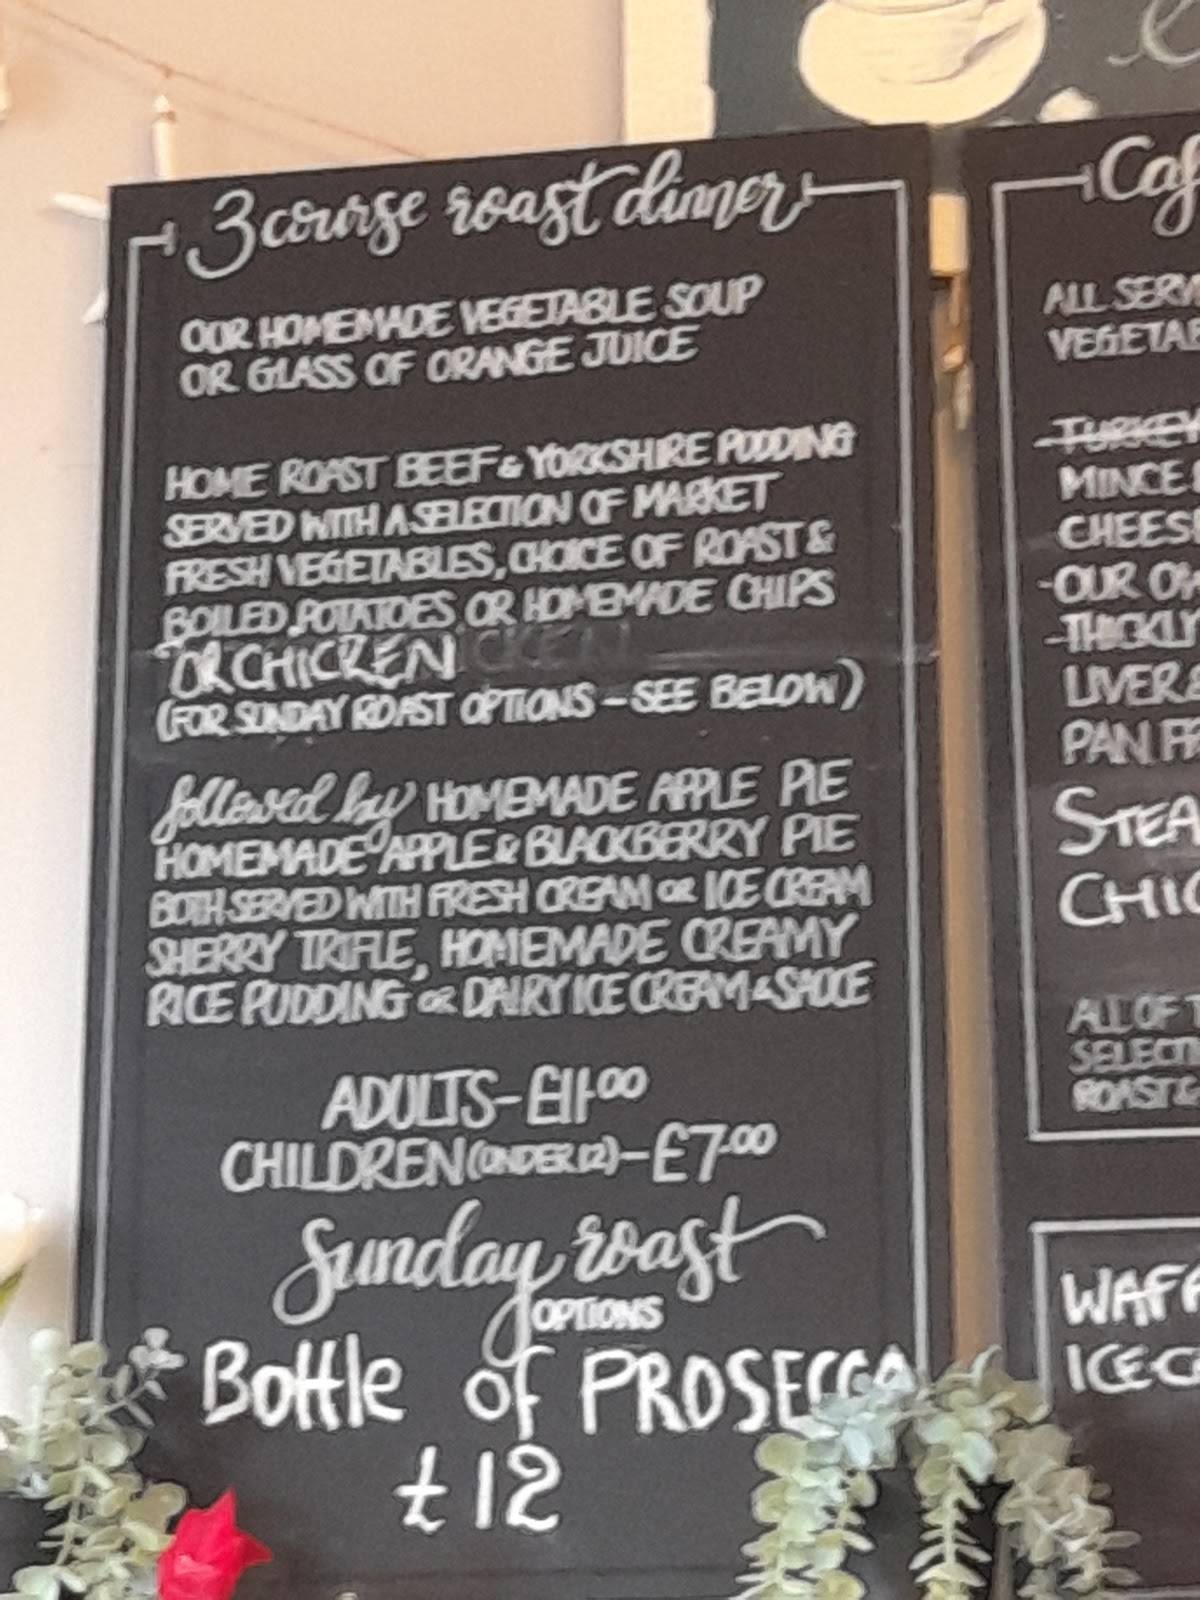 3 course roast dinner
OUR HOMEMADE VEGETABLE SOUP
OR GLASS OF ORANGE JUICE
HOME ROAST BEEF & YORKSHIRE PUDDING
SERVED WITH A SELECTION OF MARKET
FRESH VEGETABLES, CHOICE OF ROAST &
BOILED POTATOES OR HOMEMADE CHIPS
OR CHICKEN
(FOR SUNDAY ROAST OPTIONS - SEE BELOW)
followed by HOMEMADE APPLE PIE
HOMEMADE APPLE & BLACKBERRY PIE
BOTH SERVED WITH FRESH CREAM or ICE CREAM
SHERRY TRIFLE, HOMEMADE CREAMY
RICE PUDDING or DAIRY ICE CREAM & SAUCE
ADULTS - £11.00
CHILDREN (UNDER 12) - £7.00
Sunday roast
OPTIONS
Bottle of PROSECCO
£12
Caf
ALL SERV
VEGETAB
TURKEY
MINCE
CHEES
OUR OW
THICKLY
LIVER &
PAN FR
STEA
CHIC
ALL OF T
SELECTI
ROAST &
WAFF
ICE-C